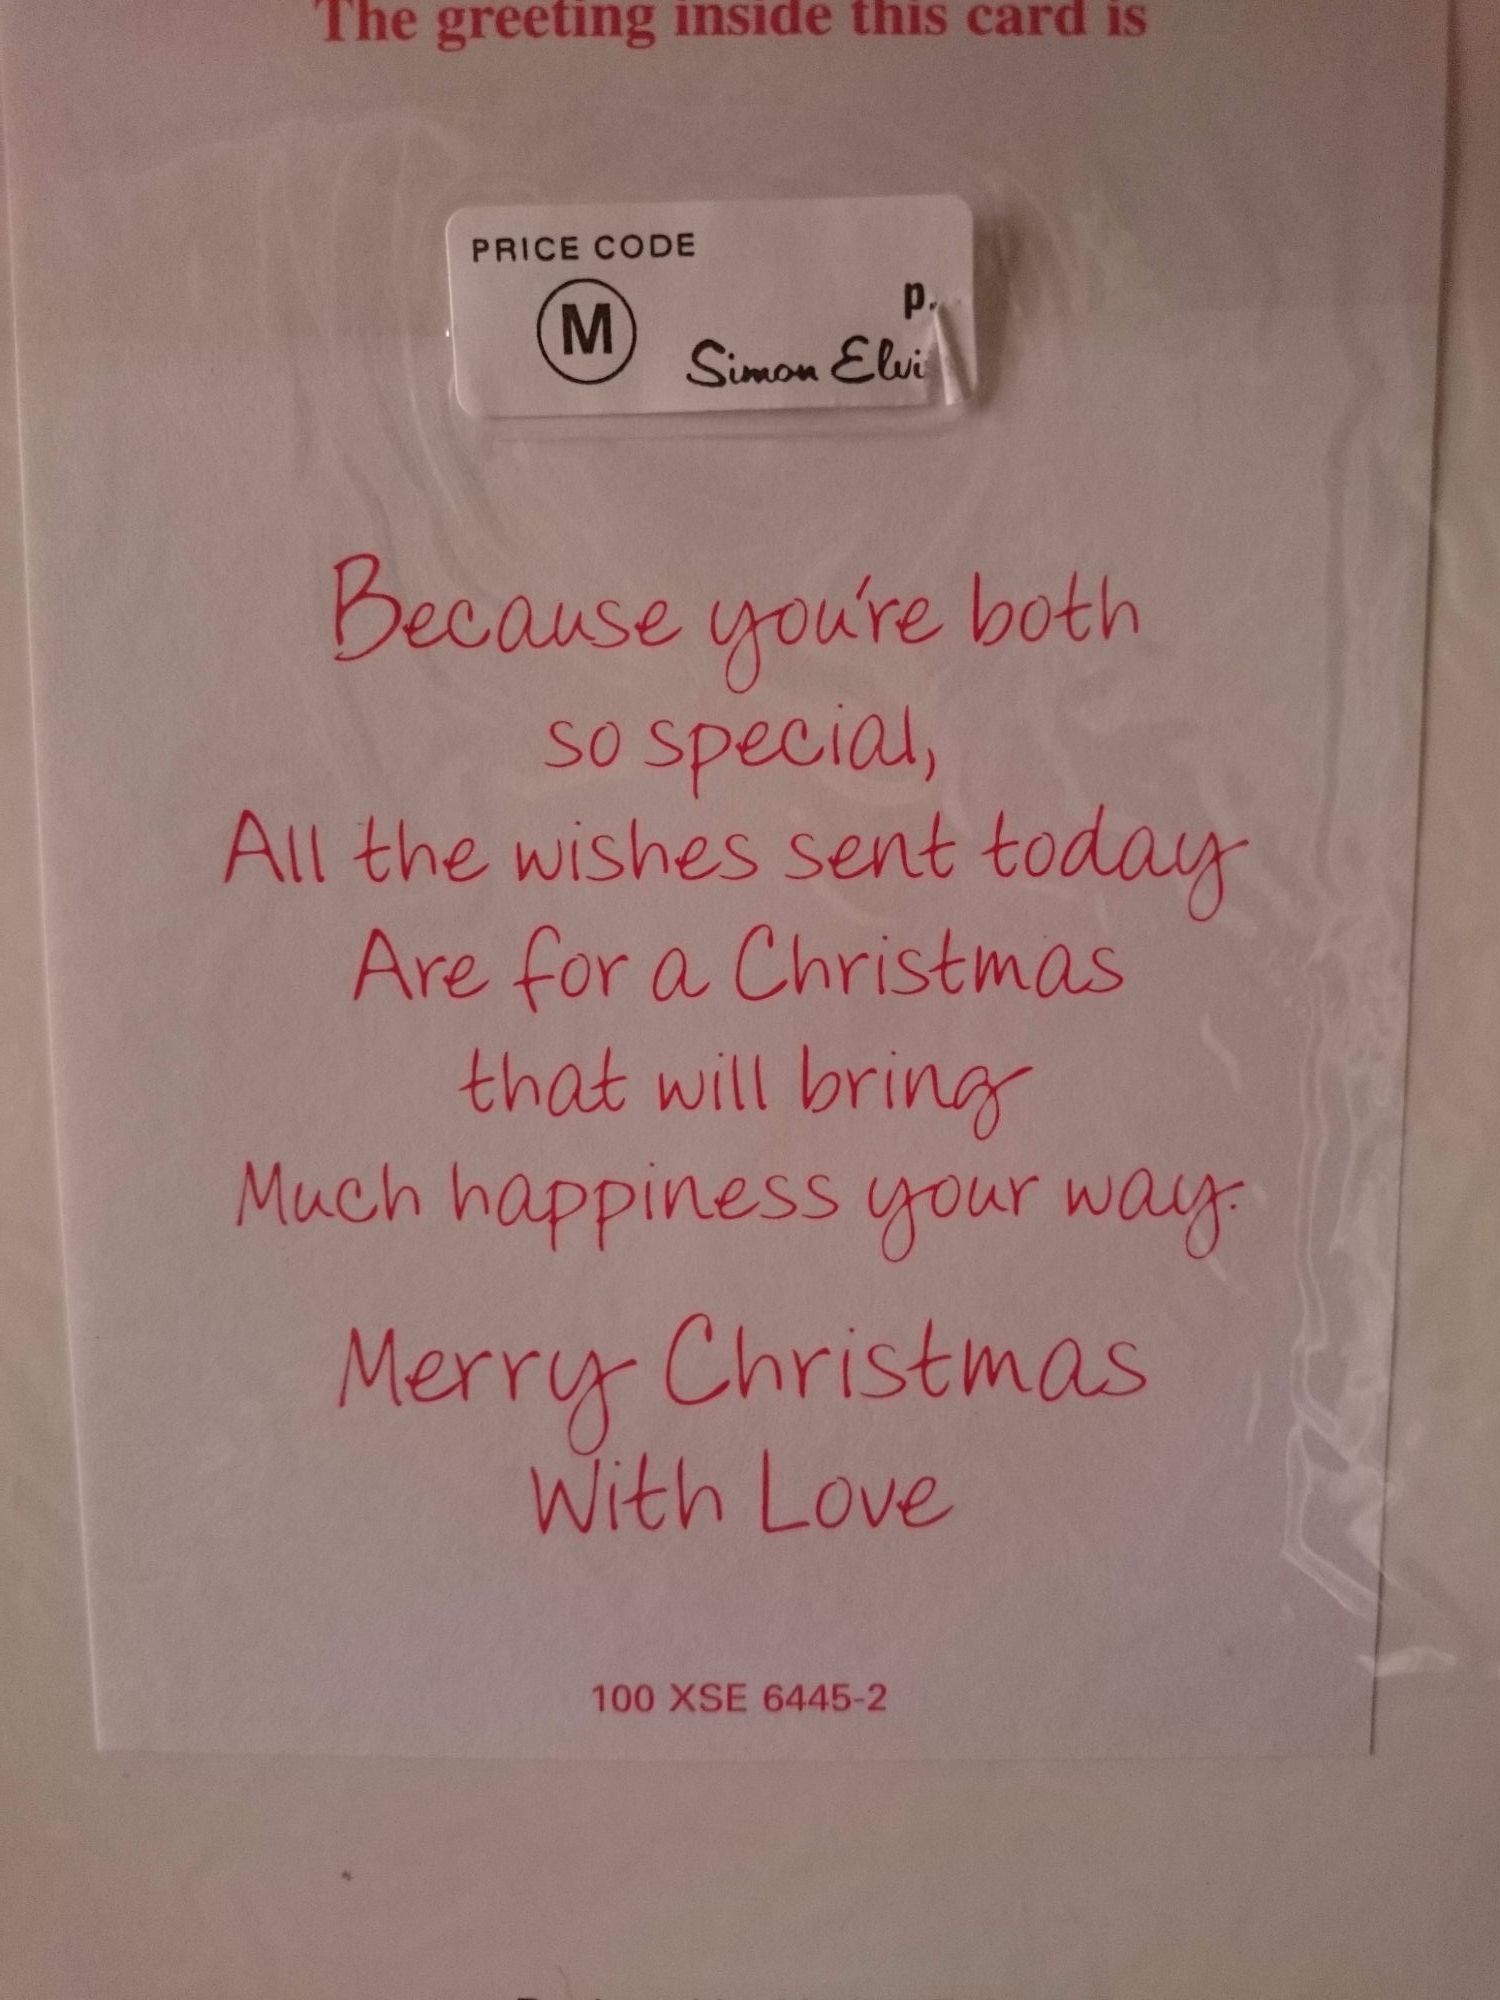 The greeting inside this card is
PRICE CODE
M
p.
Simon Elvi
Because you're both
so special,
All the wishes sent today
Are for a Christmas
that will bring
Much happiness your way.
Merry Christmas
With Love
100 XSE 6445-2